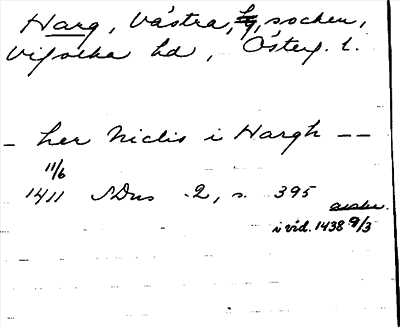 Harg, Västra, sg, socken,
Vifolka hd, Österg. l.
– her Niclis i Hargh – –
11/6
1411 SDns 2, s. 395
avskr.
i vid. 1438 9/3